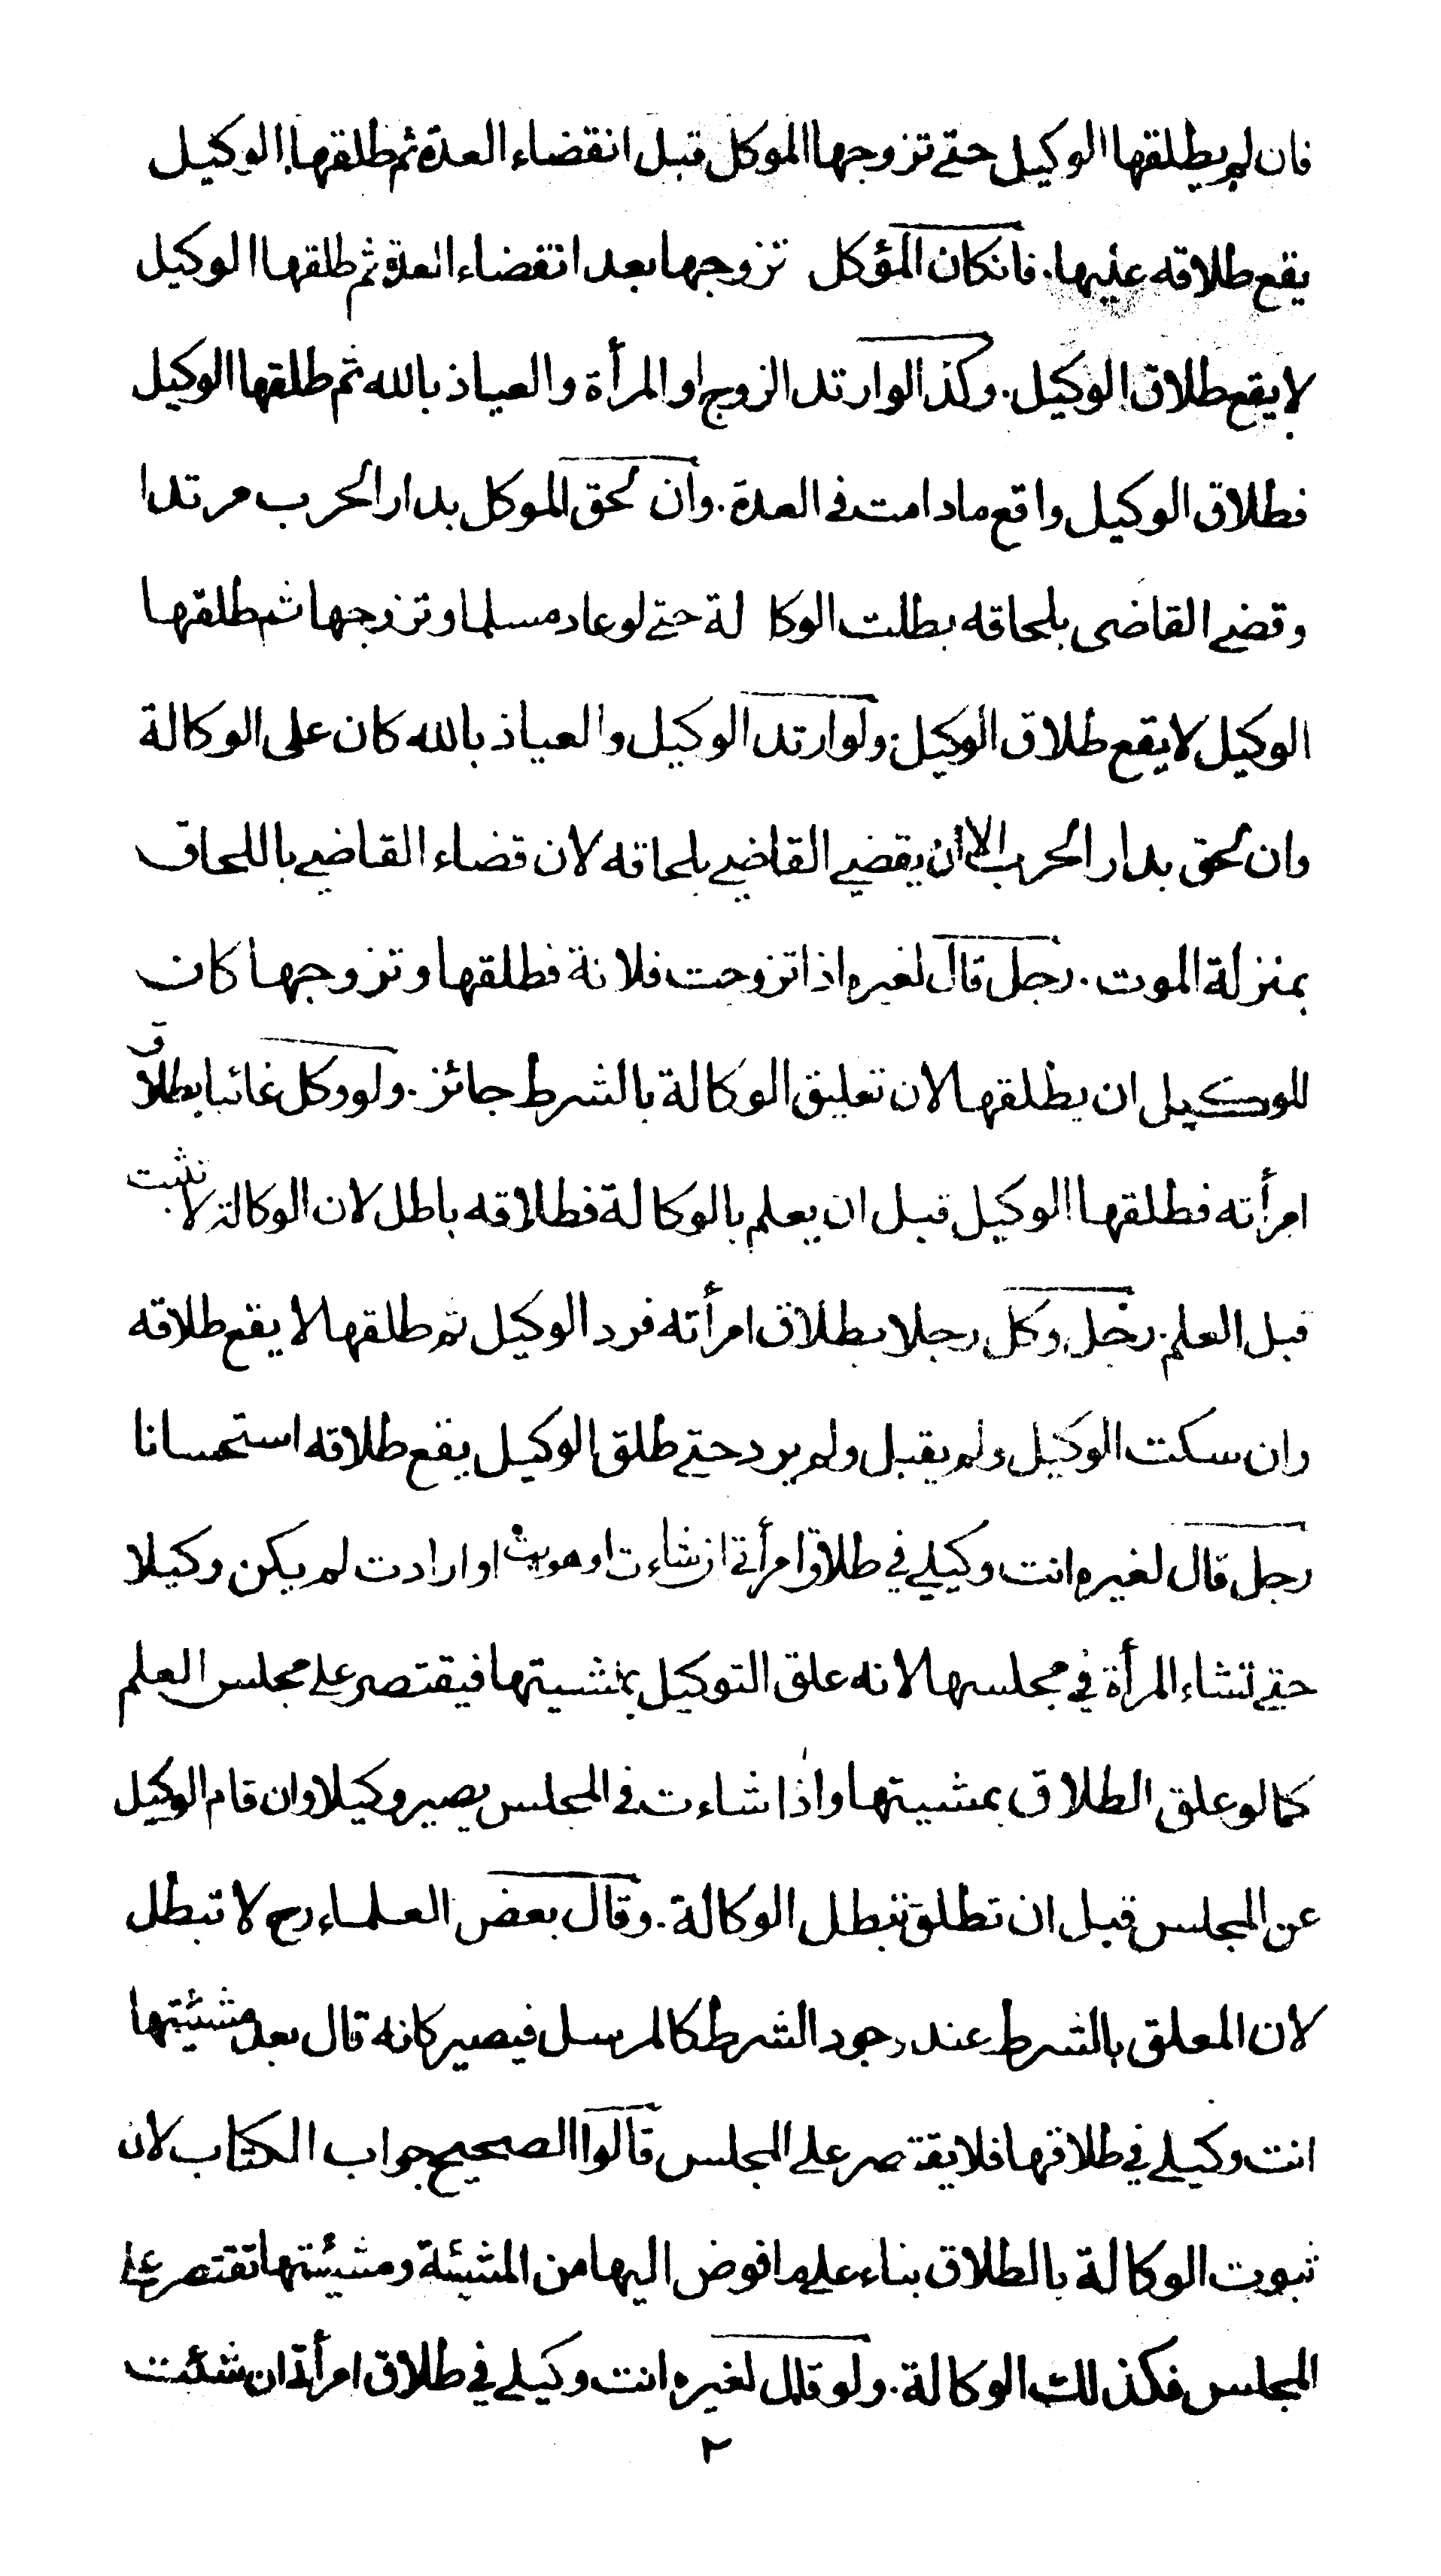 فان لم يطلقها الوكيل حتى تزوجها الموكل قبل انقضاء العدة ثم طلقها الوكيل
يقع طلاقه عليها. فانكان المؤكل تزوجها بعد انقضاء العدة ثم طلقها الوكيل
لا يقع طلاق الوكيل. وكذا لو ارتد الزوج او المرأة والعياذ بالله ثم طلقها الوكيل
فطلاق الوكيل واقع ما دامت في العدة. وان لحق الموكل بدار الحرب مرتدا
وقضى القاضى بلحاقه بطلت الوكالة حتى لو عاد مسلما وتزوجها ثم طلقها
الوكيل لا يقع طلاق الوكيل. ولو ارتد الوكيل والعياذ بالله كان على الوكالة
وان لحق بدار الحرب الا ان يقضي القاضي بلحاقه لان قضاء القاضي باللحاق
بمنزلة الموت. رجل قال لغيره اذا تزوجت فلانة فطلقها وتزوجها كان
للوكيل ان يطلقها لان تعليق الوكالة بالشرط جائز. ولو وكل غائبا بطلاق
امرأته فطلقها الوكيل قبل ان يعلم بالوكالة فطلاقه باطل لان الوكالة لا تثبت
قبل العلم. رجل وكل رجلا بطلاق امرأته فرد الوكيل ثم طلقها لا يقع طلاقه
وان سكت الوكيل ولم يقبل ولم يرد حتى طلق الوكيل يقع طلاقه استحسانا
رجل قال لغيره انت وكيلي في طلاق امرأتي ان شاءت او هويت او ارادت لم يكن وكيلا
حتى تشاء المرأة في مجلسها لانه علق التوكيل بمشيتها فيقتصر على مجلس العلم
كما لو علق الطلاق بمشيتها واذا شاءت في المجلس يصير وكيلا وان قام الوكيل
عن المجلس قبل ان تطلق تبطل الوكالة. وقال بعض العلماء رح لا تبطل
لان المعلق بالشرط عند وجود الشرط كالمرسل فيصير كانه قال بعد مشيئتها
انت وكيلي في طلاقها فلا يقتصر على المجلس قالوا الصحيح جواب الكتاب لان
ثبوت الوكالة بالطلاق بناء على ما فوض اليها من المشيئة ومشيئتها تقتصر على
المجلس فكذلك الوكالة. ولو قال لغيره انت وكيلي في طلاق امرأتي ان شئت
٢